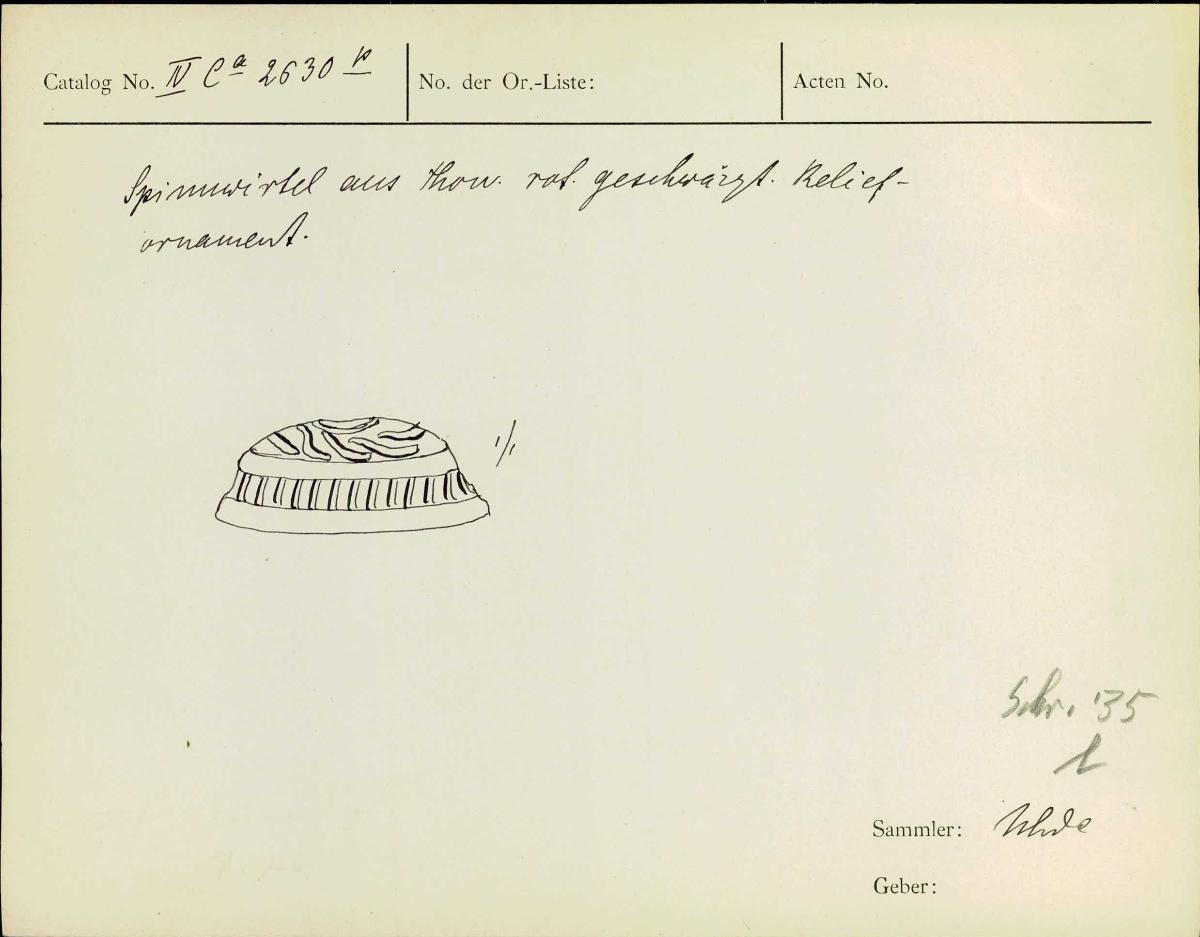 Catalog No. IV Ca 2630 No. der Or.-Liste: Acten No.
Spinnwirtel aus Thon. rot. geschwärzt. Relief-
ornament.
1/1
Schr. '35
Sammler: Uhde
Geber: